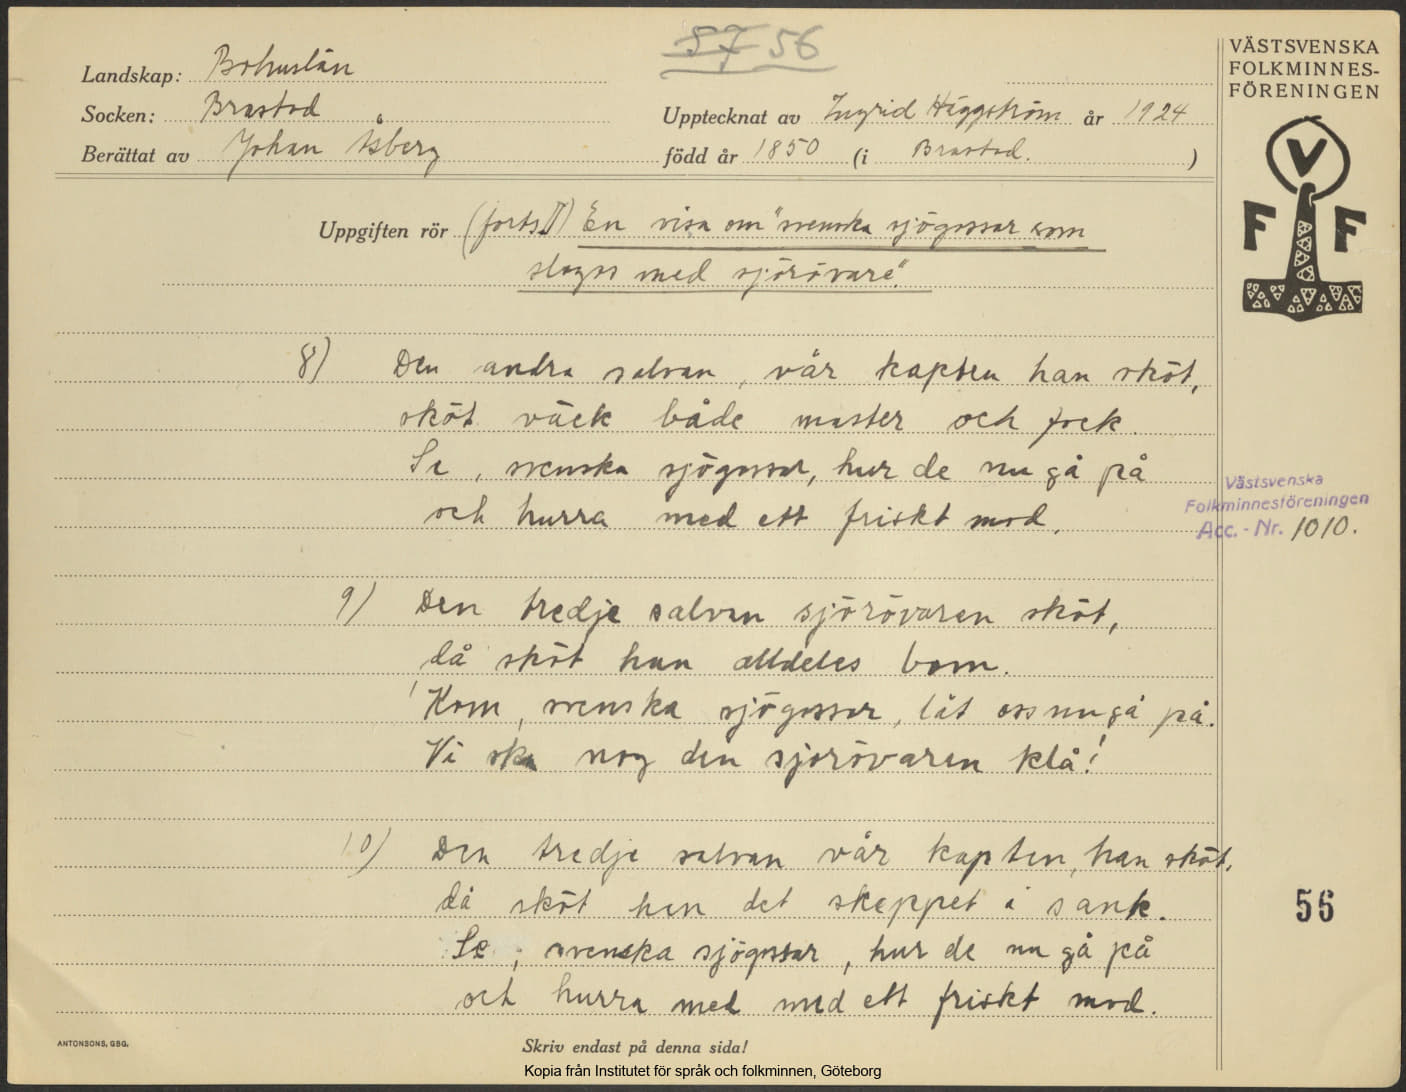 57 56
VÄSTSVENSKA
FOLKMINNES-
FÖRENINGEN
Landskap: Bohuslän
Socken: Brastad
Upptecknat av Ingrid Häggström år 1924
Berättat av Johan Åsberg
född år 1850 (i Brastad.)
V
F F
Uppgiften rör (forts. II) En visa om "svenska sjögossar som
slogos med sjörövare".
8) Den andra salvan, vår kapten han sköt,
sköt väck både master och fock.
Se, svenska sjögossar, hur de nu gå på
och hurra med ett friskt mod.
Västsvenska
Folkminnesföreningen
Acc.-Nr. 1010.
9) Den tredje salvan sjörövaren sköt,
då sköt han alldeles bom.
Kom, svenska sjögossar, låt oss nu gå på.
Vi ska nog den sjörövaren klå!
10) Den tredje salvan vår kapten, han sköt,
då sköt han det skeppet i sank.
Se, svenska sjögossar, hur de nu gå på
och hurra med med ett friskt mod.
56
ANTONSONS, GBG.
Skriv endast på denna sida!
Kopia från Institutet för språk och folkminnen, Göteborg